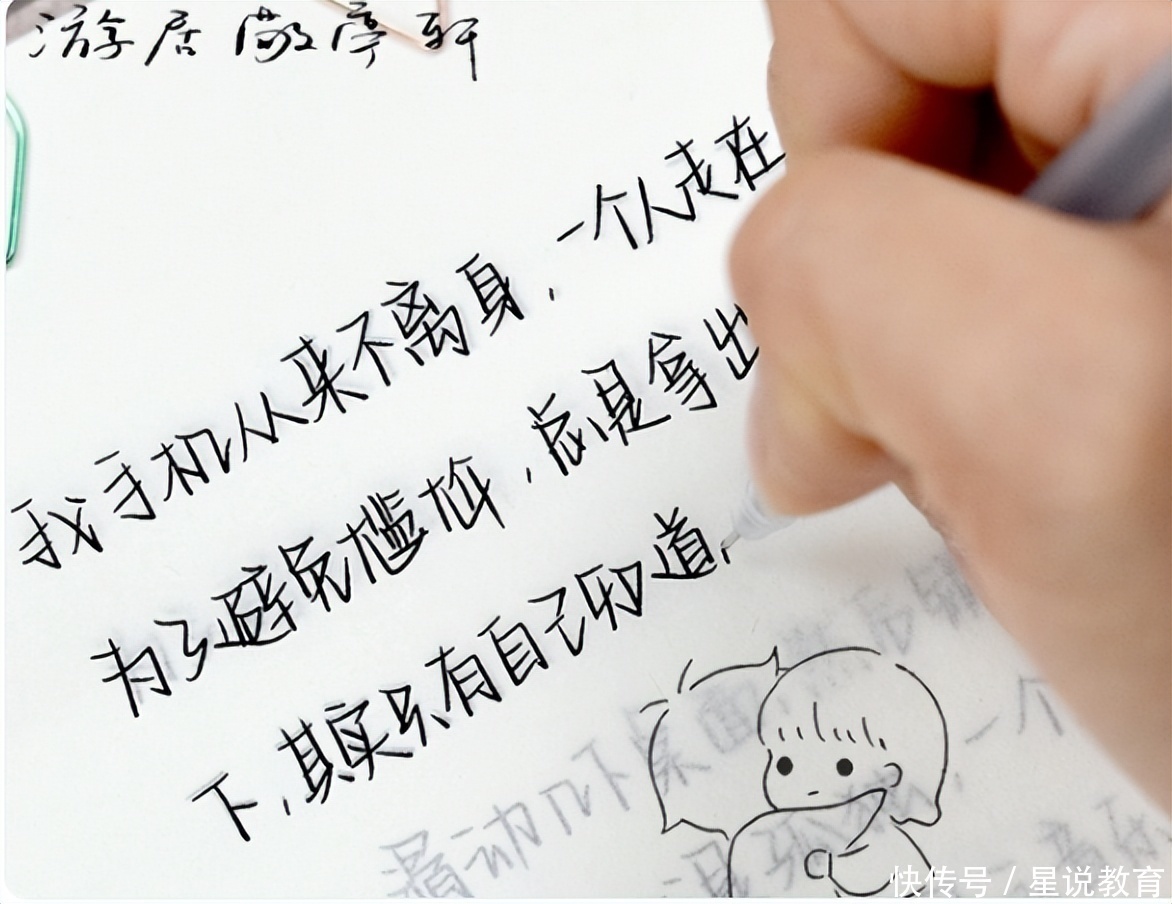 游居敬亭轩
我手机从来不离身，一个人走在
为了避免尴尬，总是拿出
下，其实只有自己知道，
滑动几下桌面
一个
快传号 / 星说教育